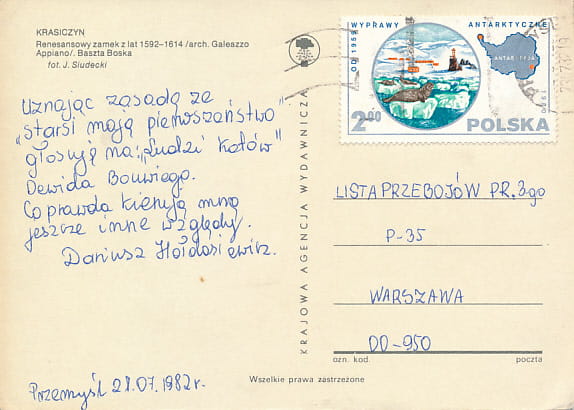 KRASICZYN
Renesansowy zamek z lat 1592–1614 /arch. Galeazzo
Appiano/. Baszta Boska
fot. J. Siudecki
Uznając zasadę że
"starsi mają pierwszeństwo"
głosuję na: "Ludzi kotów"
Dewida Bouwiego.
Co prawda kierują mną
jeszcze inne względy.
Dariusz Hołdasiewicz.
Przemyśl 21.07.1982r.
KRAJOWA AGENCJA WYDAWNICZA
WYPRAWY ANTARKTYCZNE
OD 1958
ANTARKTYDA
1980
2.00 POLSKA
LISTA PRZEBOJÓW PR. 3-go
P-35
WARSZAWA
00-950
ozn. kod. poczta
Wszelkie prawa zastrzeżone